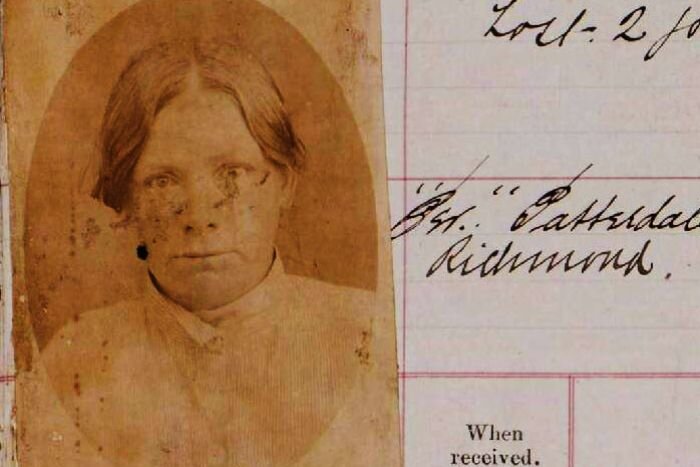 Lost - 2 jo
"Per." Patterdale
Richmond.
When
received.